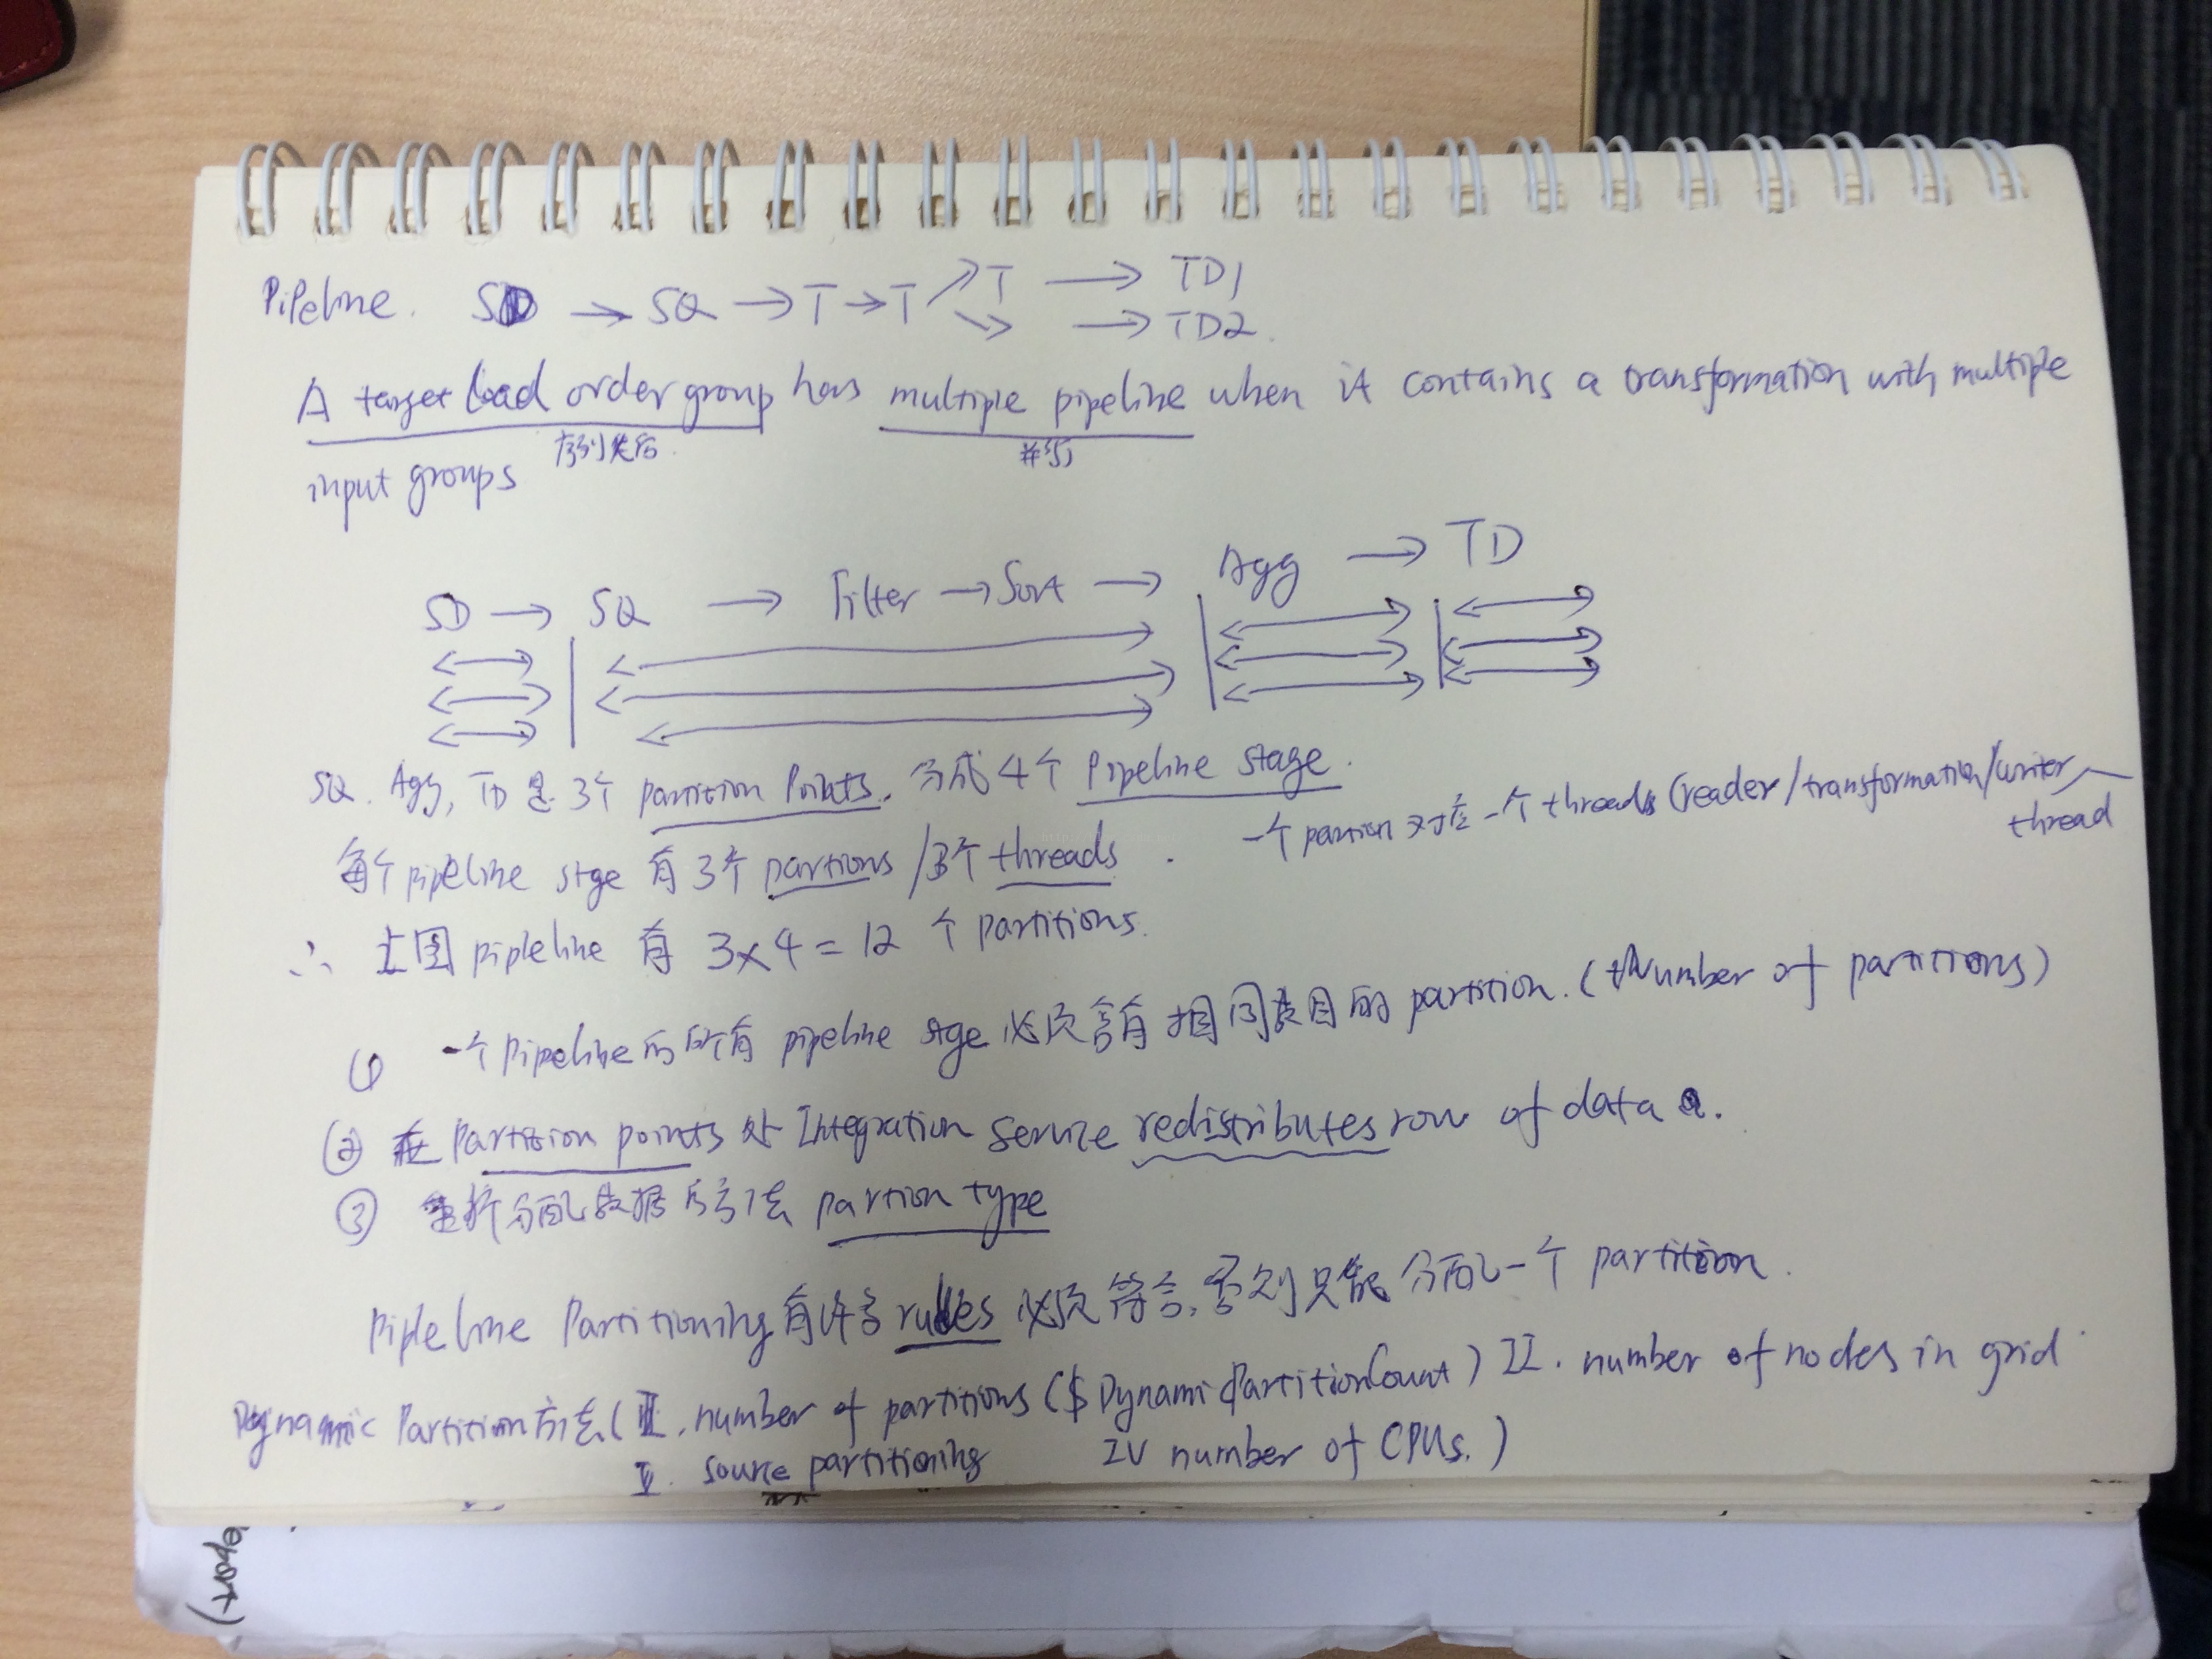 Pipeline. SD → SQ → T → T ↗ T → TD1
↘ → TD2.
A target load order group has multiple pipeline when it contains a transformation with multiple
序列先后 并行
input groups
SD → SQ → Filter → Sort → Agg → TD
SQ. Agg, TD 是 3个 partition Points. 分成 4个 Pipeline stage.
每个 pipeline stge 有 3个 partions / 3个 threads. 一个 partion 对应 一个 threads (reader/transformation/writer
thread
∴ 上图 pipleline 有 3×4=12 个 partitions.
① 一个 Pipeline 的所有 pipeline stge 必须含有相同数目的 partition. (Number of partitions)
② 在 Partition points 处 Integration Service redistributes row of data.
③ 重新分配数据方法 partion type
Pipleline Partitioning 有许多 rules 必须符合, 否则只能分配一个 partition.
Dynamic Partition 方法 ( I. number of partitions ($DynamicPartitionCount) II. number of nodes in grid
V. source partitioning IV number of CPUs. )
eport)